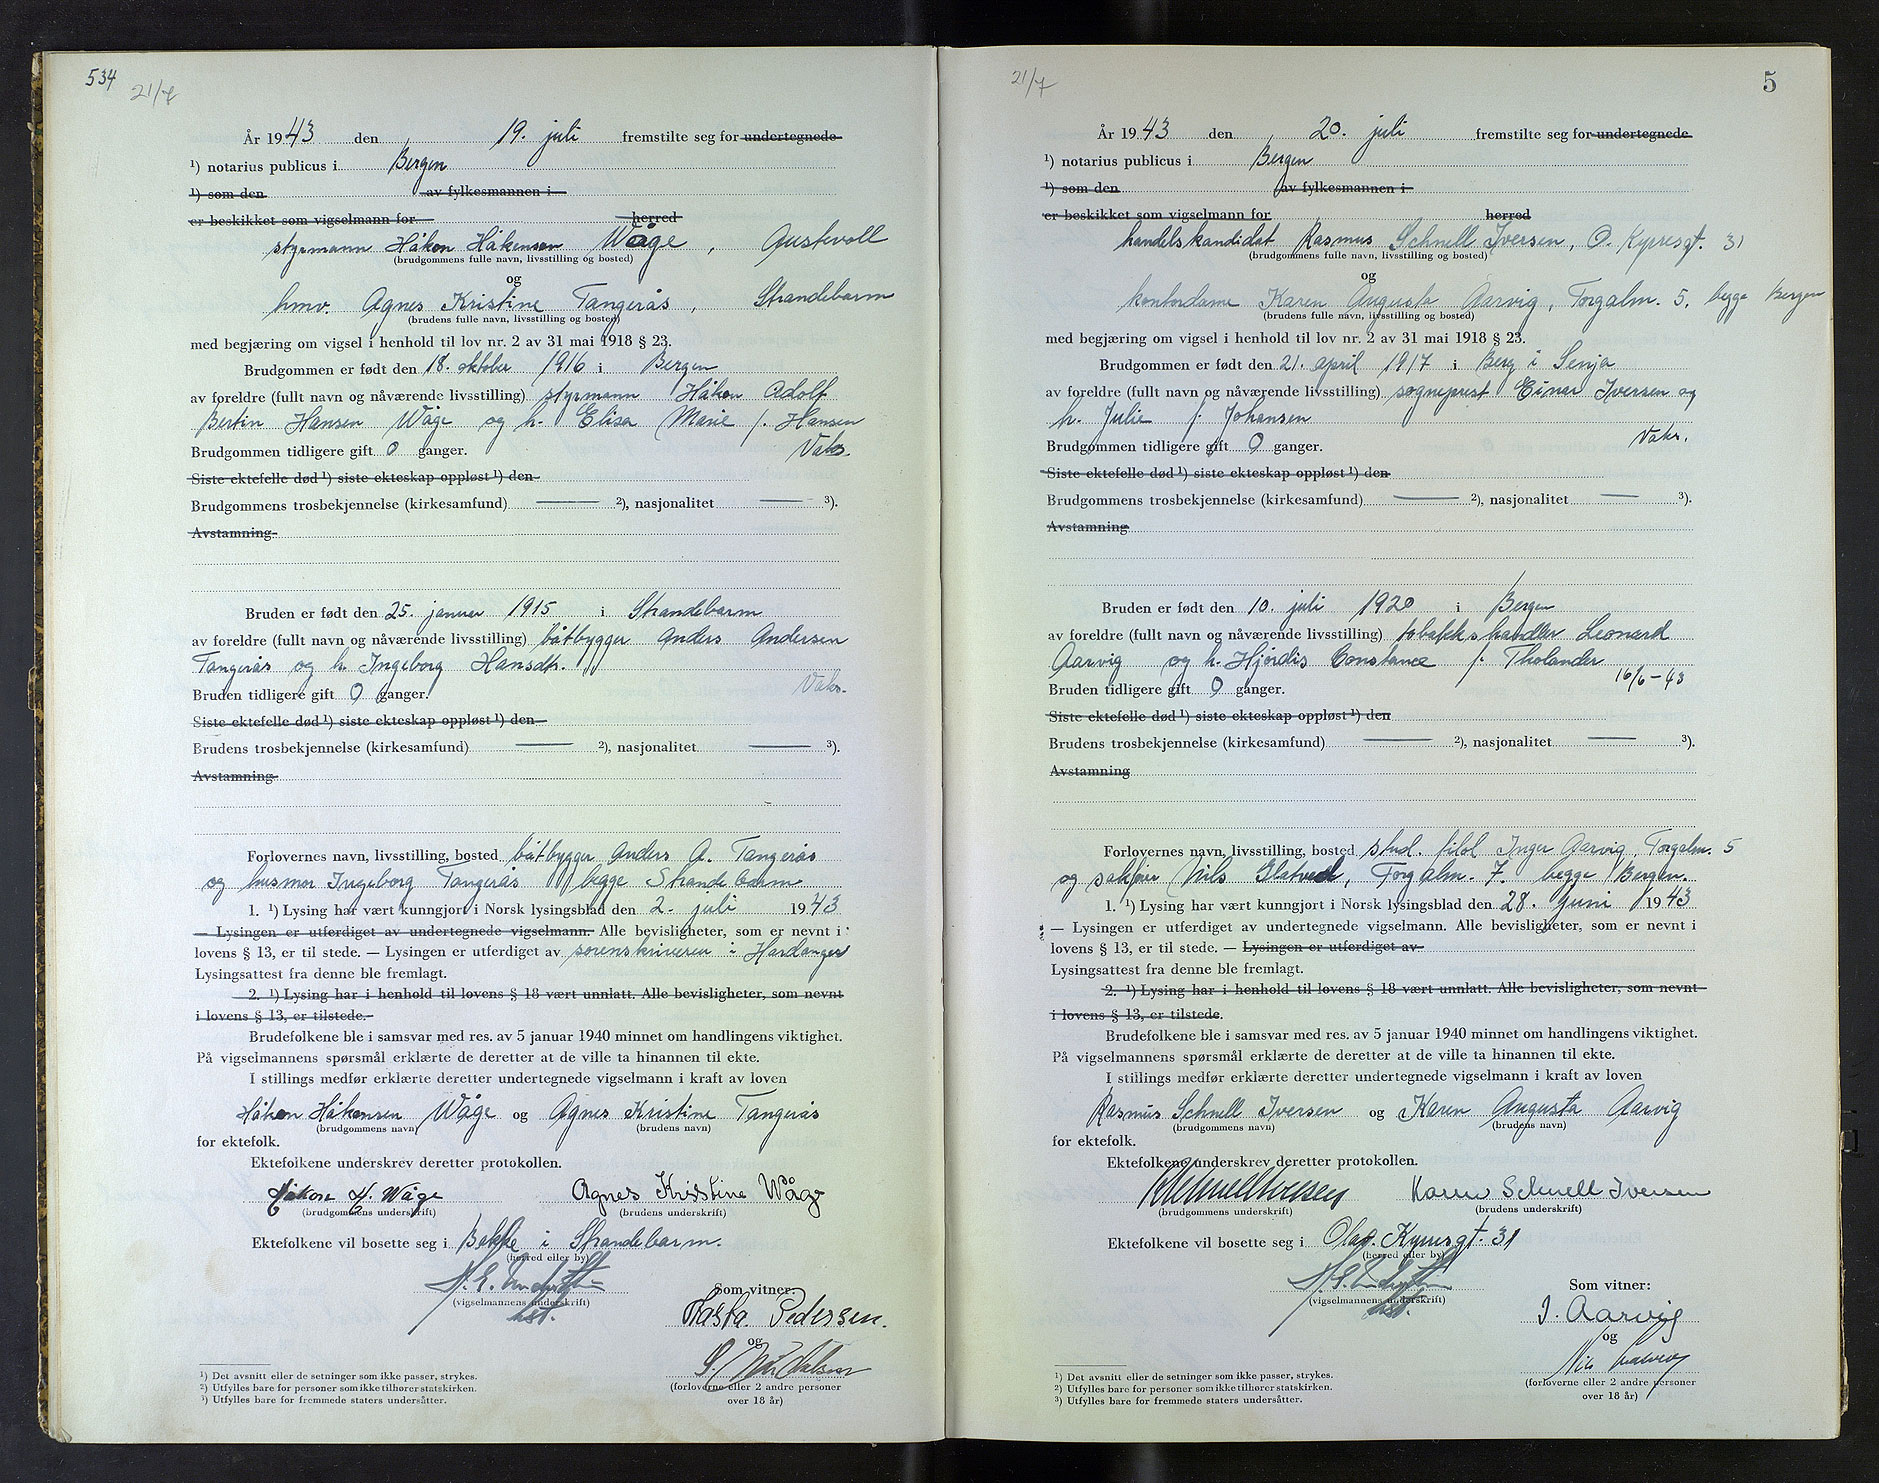 534
21/7
År 1943 den 19. juli fremstilte seg for undertegnede
¹) notarius publicus i Bergen
¹) som den av fylkesmannen i
er beskikket som vigselmann for herred
styrmann Håkon Håkonsen Våge, Austevoll
(brudgommens fulle navn, livsstilling og bosted)
og
hmv. Agnes Kristine Tangerås, Strandebarm
(brudens fulle navn, livsstilling og bosted)
med begjæring om vigsel i henhold til lov nr. 2 av 31 mai 1918 § 23.
Brudgommen er født den 18. oktober 1916 i Bergen
av foreldre (fullt navn og nåværende livsstilling) styrmann Håkon Adolf
Bertin Hansen Våge og h. Elisa Marie f. Hansen
Vaks.
Brudgommen tidligere gift 0 ganger.
Siste ektefelle død ¹) siste ekteskap oppløst ¹) den
Brudgommens trosbekjennelse (kirkesamfund) — ²), nasjonalitet — ³).
Avstamning
Bruden er født den 25. januar 1915 i Strandebarm
av foreldre (fullt navn og nåværende livsstilling) båtbygger Anders Andersen
Tangerås og h. Ingeborg Hansdtr.
Vaks.
Bruden tidligere gift 0 ganger.
Siste ektefelle død ¹) siste ekteskap oppløst ¹) den
Brudens trosbekjennelse (kirkesamfund) — ²), nasjonalitet — ³).
Avstamning
Forlovernes navn, livsstilling, bosted båtbygger Anders A. Tangerås
og husmor Ingeborg Tangerås begge Strandebarm
1. ¹) Lysing har vært kunngjort i Norsk lysingsblad den 2. juli 1943
— Lysingen er utferdiget av undertegnede vigselmann. Alle bevisligheter, som er nevnt i
lovens § 13, er til stede. — Lysingen er utferdiget av sorenskriveren i Hardanger
Lysingsattest fra denne ble fremlagt.
2. ¹) Lysing har i henhold til lovens § 18 vært unnlatt. Alle bevisligheter, som nevnt
i lovens § 13, er tilstede.
Brudefolkene ble i samsvar med res. av 5 januar 1940 minnet om handlingens viktighet.
På vigselmannens spørsmål erklærte de deretter at de ville ta hinannen til ekte.
I stillings medfør erklærte deretter undertegnede vigselmann i kraft av loven
Håkon Håkonsen Våge og Agnes Kristine Tangerås
(brudgommens navn) (brudens navn)
for ektefolk.
Ektefolkene underskrev deretter protokollen.
Håkon H. Våge Agnes Kristine Våge
(brudgommens underskrift) (brudens underskrift)
Ektefolkene vil bosette seg i Bakke i Strandebarm.
(herred eller by)
(vigselmannens underskrift)
Som vitner:
Pedersen.
og
(forloverne eller 2 andre personer
over 18 år)
¹) Det avsnitt eller de setninger som ikke passer, strykes.
²) Utfylles bare for personer som ikke tilhører statskirken.
³) Utfylles bare for fremmede staters undersåtter.
21/7
5
År 1943 den 20. juli fremstilte seg for undertegnede
¹) notarius publicus i Bergen
¹) som den av fylkesmannen i
er beskikket som vigselmann for herred
handelskandidat Rasmus Schnell Iversen, O. Kyrresgt. 31
(brudgommens fulle navn, livsstilling og bosted)
og
kontordame Karen Augusta Aarvig, Torgalm. 5. begge Bergen
(brudens fulle navn, livsstilling og bosted)
med begjæring om vigsel i henhold til lov nr. 2 av 31 mai 1918 § 23.
Brudgommen er født den 21. april 1917 i Berg i Senja
av foreldre (fullt navn og nåværende livsstilling) sogneprest Einar Iversen og
h. Julie f. Johansen
Vaks.
Brudgommen tidligere gift 0 ganger.
Siste ektefelle død ¹) siste ekteskap oppløst ¹) den
Brudgommens trosbekjennelse (kirkesamfund) — ²), nasjonalitet — ³).
Avstamning
Bruden er født den 10. juli 1920 i Bergen
av foreldre (fullt navn og nåværende livsstilling) tobakkshandler Leonard
Aarvig og h. Hjørdis Constance f. Tholander
16/6-43
Bruden tidligere gift 0 ganger.
Siste ektefelle død ¹) siste ekteskap oppløst ¹) den
Brudens trosbekjennelse (kirkesamfund) — ²), nasjonalitet — ³).
Avstamning
Forlovernes navn, livsstilling, bosted stud. filol Inger Aarvig, Torgalm. 5
og sakfører Nils Glatved, Torgalm. 7. begge Bergen.
1. ¹) Lysing har vært kunngjort i Norsk lysingsblad den 28. juni 1943
— Lysingen er utferdiget av undertegnede vigselmann. Alle bevisligheter, som er nevnt i
lovens § 13, er til stede. — Lysingen er utferdiget av
Lysingsattest fra denne ble fremlagt.
2. ¹) Lysing har i henhold til lovens § 18 vært unnlatt. Alle bevisligheter, som nevnt
i lovens § 13, er tilstede.
Brudefolkene ble i samsvar med res. av 5 januar 1940 minnet om handlingens viktighet.
På vigselmannens spørsmål erklærte de deretter at de ville ta hinannen til ekte.
I stillings medfør erklærte deretter undertegnede vigselmann i kraft av loven
Rasmus Schnell Iversen og Karen Augusta Aarvig
(brudgommens navn) (brudens navn)
for ektefolk.
Ektefolkene underskrev deretter protokollen.
R Schnell Iversen Karen Schnell Iversen
(brudgommens underskrift) (brudens underskrift)
Ektefolkene vil bosette seg i Olav. Kyrresgt. 31
(herred eller by)
(vigselmannens underskrift)
Som vitner:
I. Aarvig
og
(forloverne eller 2 andre personer
over 18 år)
¹) Det avsnitt eller de setninger som ikke passer, strykes.
²) Utfylles bare for personer som ikke tilhører statskirken.
³) Utfylles bare for fremmede staters undersåtter.